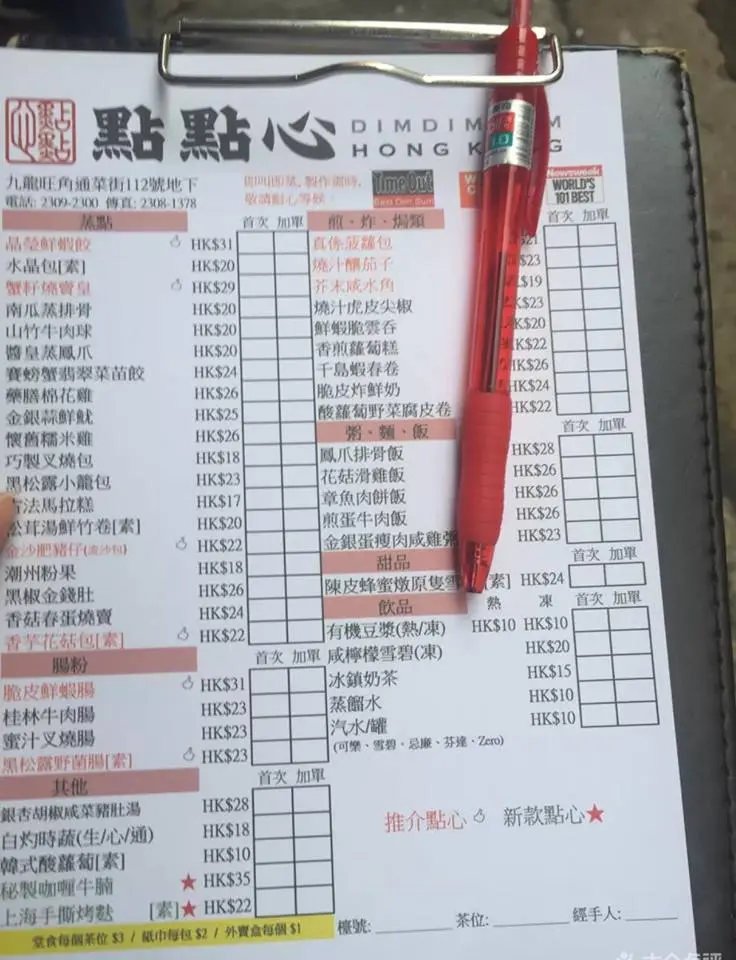 點點心
DIMDIM
HONG K G
九龍旺角通菜街112號地下
電話: 2309-2300 傳真: 2308-1378
即叫即蒸, 製作需時,
敬請耐心等候。
Time Out
Best Dim Sum
Newsweek
WORLD'S
101 BEST
蒸點 首次 加單
晶瑩鮮蝦餃 HK$31
水晶包[素] HK$20
蟹籽燒賣皇 HK$29
南瓜蒸排骨 HK$20
山竹牛肉球 HK$20
醬皇蒸鳳爪 HK$20
賽螃蟹翡翠菜苗餃 HK$24
藥膳棉花雞 HK$26
金銀蒜鮮魷 HK$25
懷舊糯米雞 HK$26
巧製叉燒包 HK$18
黑松露小籠包 HK$23
古法馬拉糕 HK$17
松茸湯鮮竹卷[素] HK$20
金沙肥豬仔(流沙包) HK$22
潮州粉果 HK$18
黑椒金錢肚 HK$26
香菇春蛋燒賣 HK$24
香芋花菇包[素] HK$22
腸粉 首次 加單
脆皮鮮蝦腸 HK$31
桂林牛肉腸 HK$23
蜜汁叉燒腸 HK$23
黑松露野菌腸[素] HK$23
其他 首次 加單
銀杏胡椒咸菜豬肚湯 HK$28
白灼時蔬(生/心/通) HK$18
韓式酸蘿蔔[素] HK$10
秘製咖喱牛腩 ★ HK$35
上海手撕烤麩 [素]★ HK$22
堂食每個茶位 $3 / 紙巾每包 $2 / 外賣盒每個 $1
煎、炸、焗類 首次 加單
真係菠蘿包 $21
燒汁釀茄子 $23
芥末咸水角 K$19
燒汁虎皮尖椒 K$23
鮮蝦脆雲吞 K$20
香煎蘿蔔糕 K$22
千島蝦春卷 HK$26
脆皮炸鮮奶 HK$24
酸蘿蔔野菜腐皮卷 HK$22
粥、麵、飯 首次 加單
鳳爪排骨飯 HK$28
花菇滑雞飯 HK$26
章魚肉餅飯 HK$26
煎蛋牛肉飯 HK$26
金銀蛋瘦肉咸雞粥 HK$23
甜品 首次 加單
陳皮蜂蜜燉原隻雪 [素] HK$24
飲品 熱 凍 首次 加單
有機豆漿(熱/凍) HK$10 HK$10
咸檸檬雪碧(凍) HK$20
冰鎮奶茶 HK$15
蒸餾水 HK$10
汽水/罐 HK$10
(可樂、雪碧、忌廉、芬達、Zero)
推介點心 新款點心★
檯號: 茶位: 經手人: